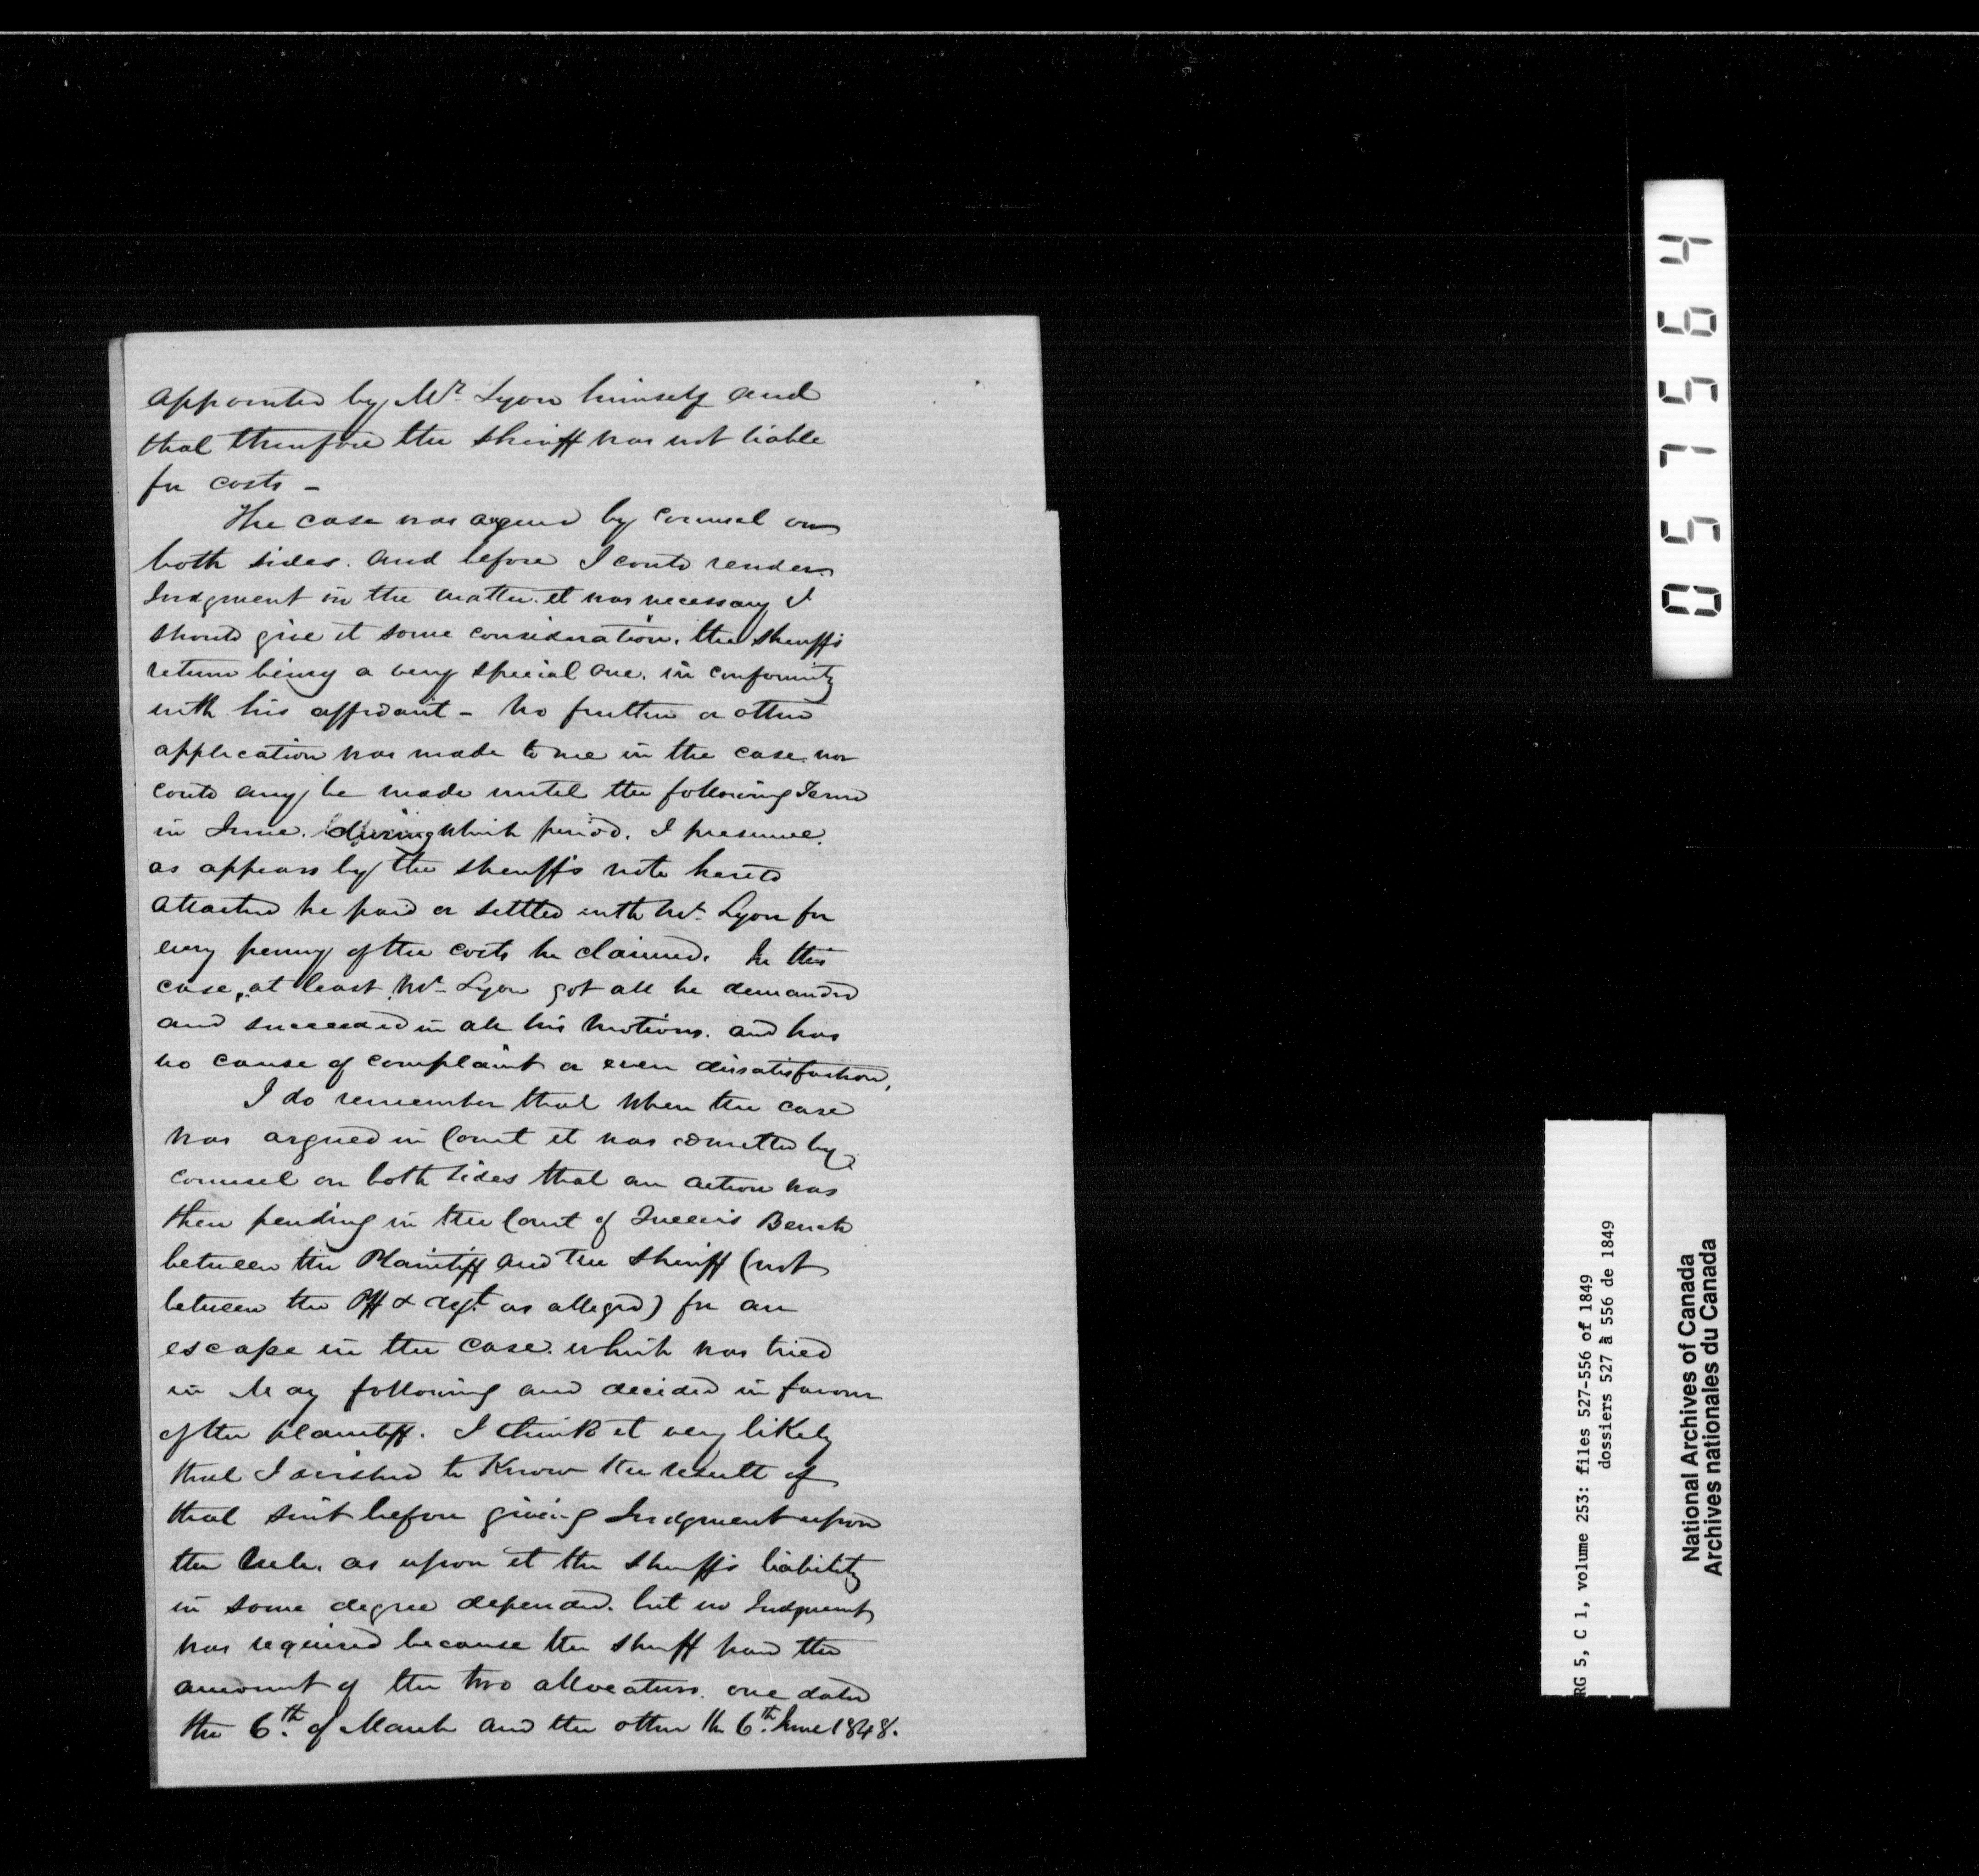 appointed by Mr. Lyon himself and
that therefore the Sheriff was not liable
for costs -
The case was argued by Counsel on
both sides. and before I could render
Judgment in the matter. it was necessary I
should give it some consideration. the Sheriff's
return being a very special one. in conformity
with his affidavit - No further or other
application was made to me in the case. nor
could any be made until the following Term
in June. during which period. I presume.
as appears by the Sheriff's note hereto
attached he paid or settled with Mr. Lyon for
every penny of the costs he claimed. In this
case, at least Mr. Lyon got all he demanded
and succeeded in all his motions. and has
no cause of complaint or even dissatisfaction.
I do remember that when the case
was argued in Court it was admitted by
counsel on both sides that an action was
then pending in the Court of Queen's Bench
between the Plaintiff and the Sheriff (not
between the Plff & deft. as alleged) for an
escape in the case. which was tried
in May following and decided in favour
of the plaintiff. I think it very likely
that I wished to Know the result of
that suit before giving Judgment upon
the Rule. as upon it the Sheriff's liability
in some degree depended. but no Judgment
was required because the Sheriff paid the
amount of the two allocaturs. one dated
the 6th. of March and the other the 6th. June 1848.
057564
RG 5, C 1, volume 253: files 527-556 of 1849
dossiers 527 à 556 de 1849
National Archives of Canada
Archives nationales du Canada